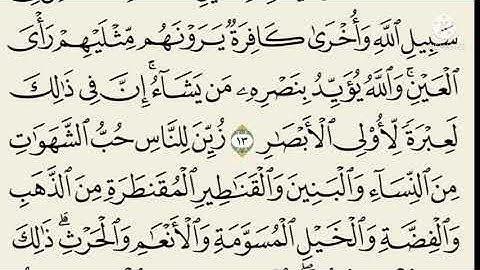 سَبِيلِ ٱللَّهِ وَأُخْرَىٰ كَافِرَةٌ يَرَوْنَهُم مِّثْلَيْهِمْ رَأْىَ
ٱلْعَيْنِ ۚ وَٱللَّهُ يُؤَيِّدُ بِنَصْرِهِۦ مَن يَشَآءُ ۗ إِنَّ فِى ذَٰلِكَ
لَعِبْرَةً لِّأُو۟لِى ٱلْأَبْصَٰرِ ١٣ زُيِّنَ لِلنَّاسِ حُبُّ ٱلشَّهَوَٰتِ
مِنَ ٱلنِّسَآءِ وَٱلْبَنِينَ وَٱلْقَنَٰطِيرِ ٱلْمُقَنطَرَةِ مِنَ ٱلذَّهَبِ
وَٱلْفِضَّةِ وَٱلْخَيْلِ ٱلْمُسَوَّمَةِ وَٱلْأَنْعَٰمِ وَٱلْحَرْثِ ۗ ذَٰلِكَ